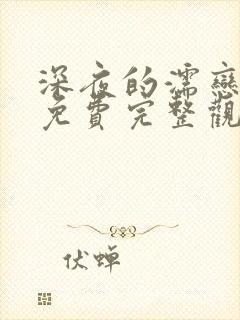 深夜的濡戀
免費完整觀
伏蟬